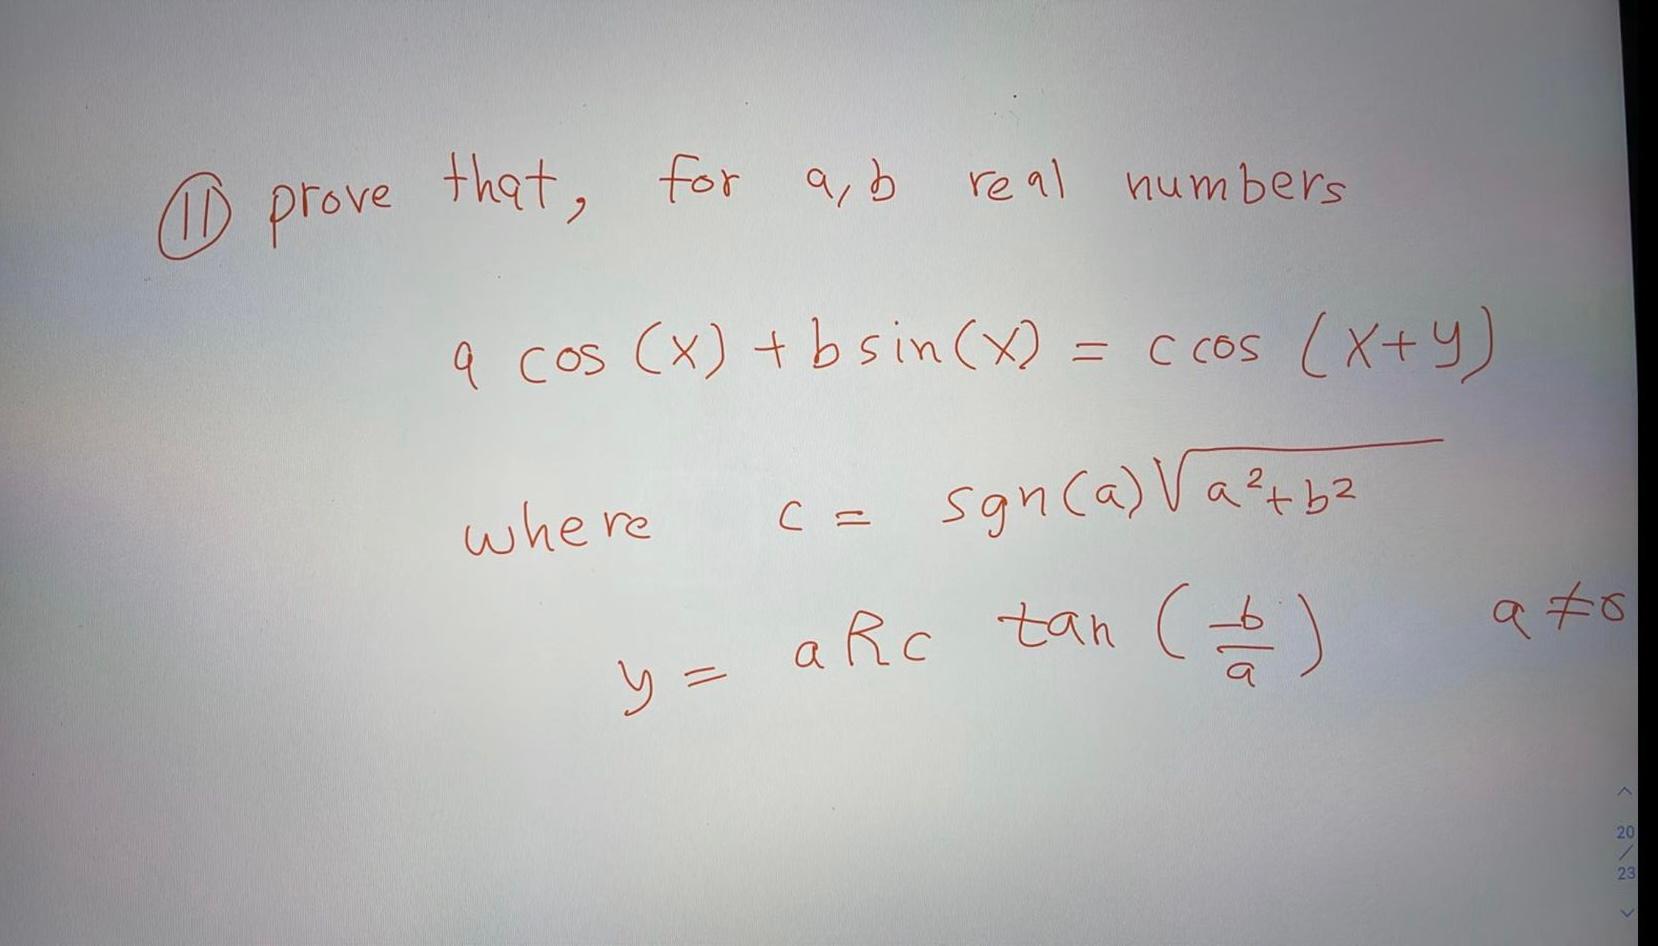 ⑪ prove that, for a, b real numbers
a cos (x) + b sin(x) = c cos (x+y)
where c = sgn(a) √a²+b²
y = aRc tan (-b/a) a ≠ 0
20
/
23